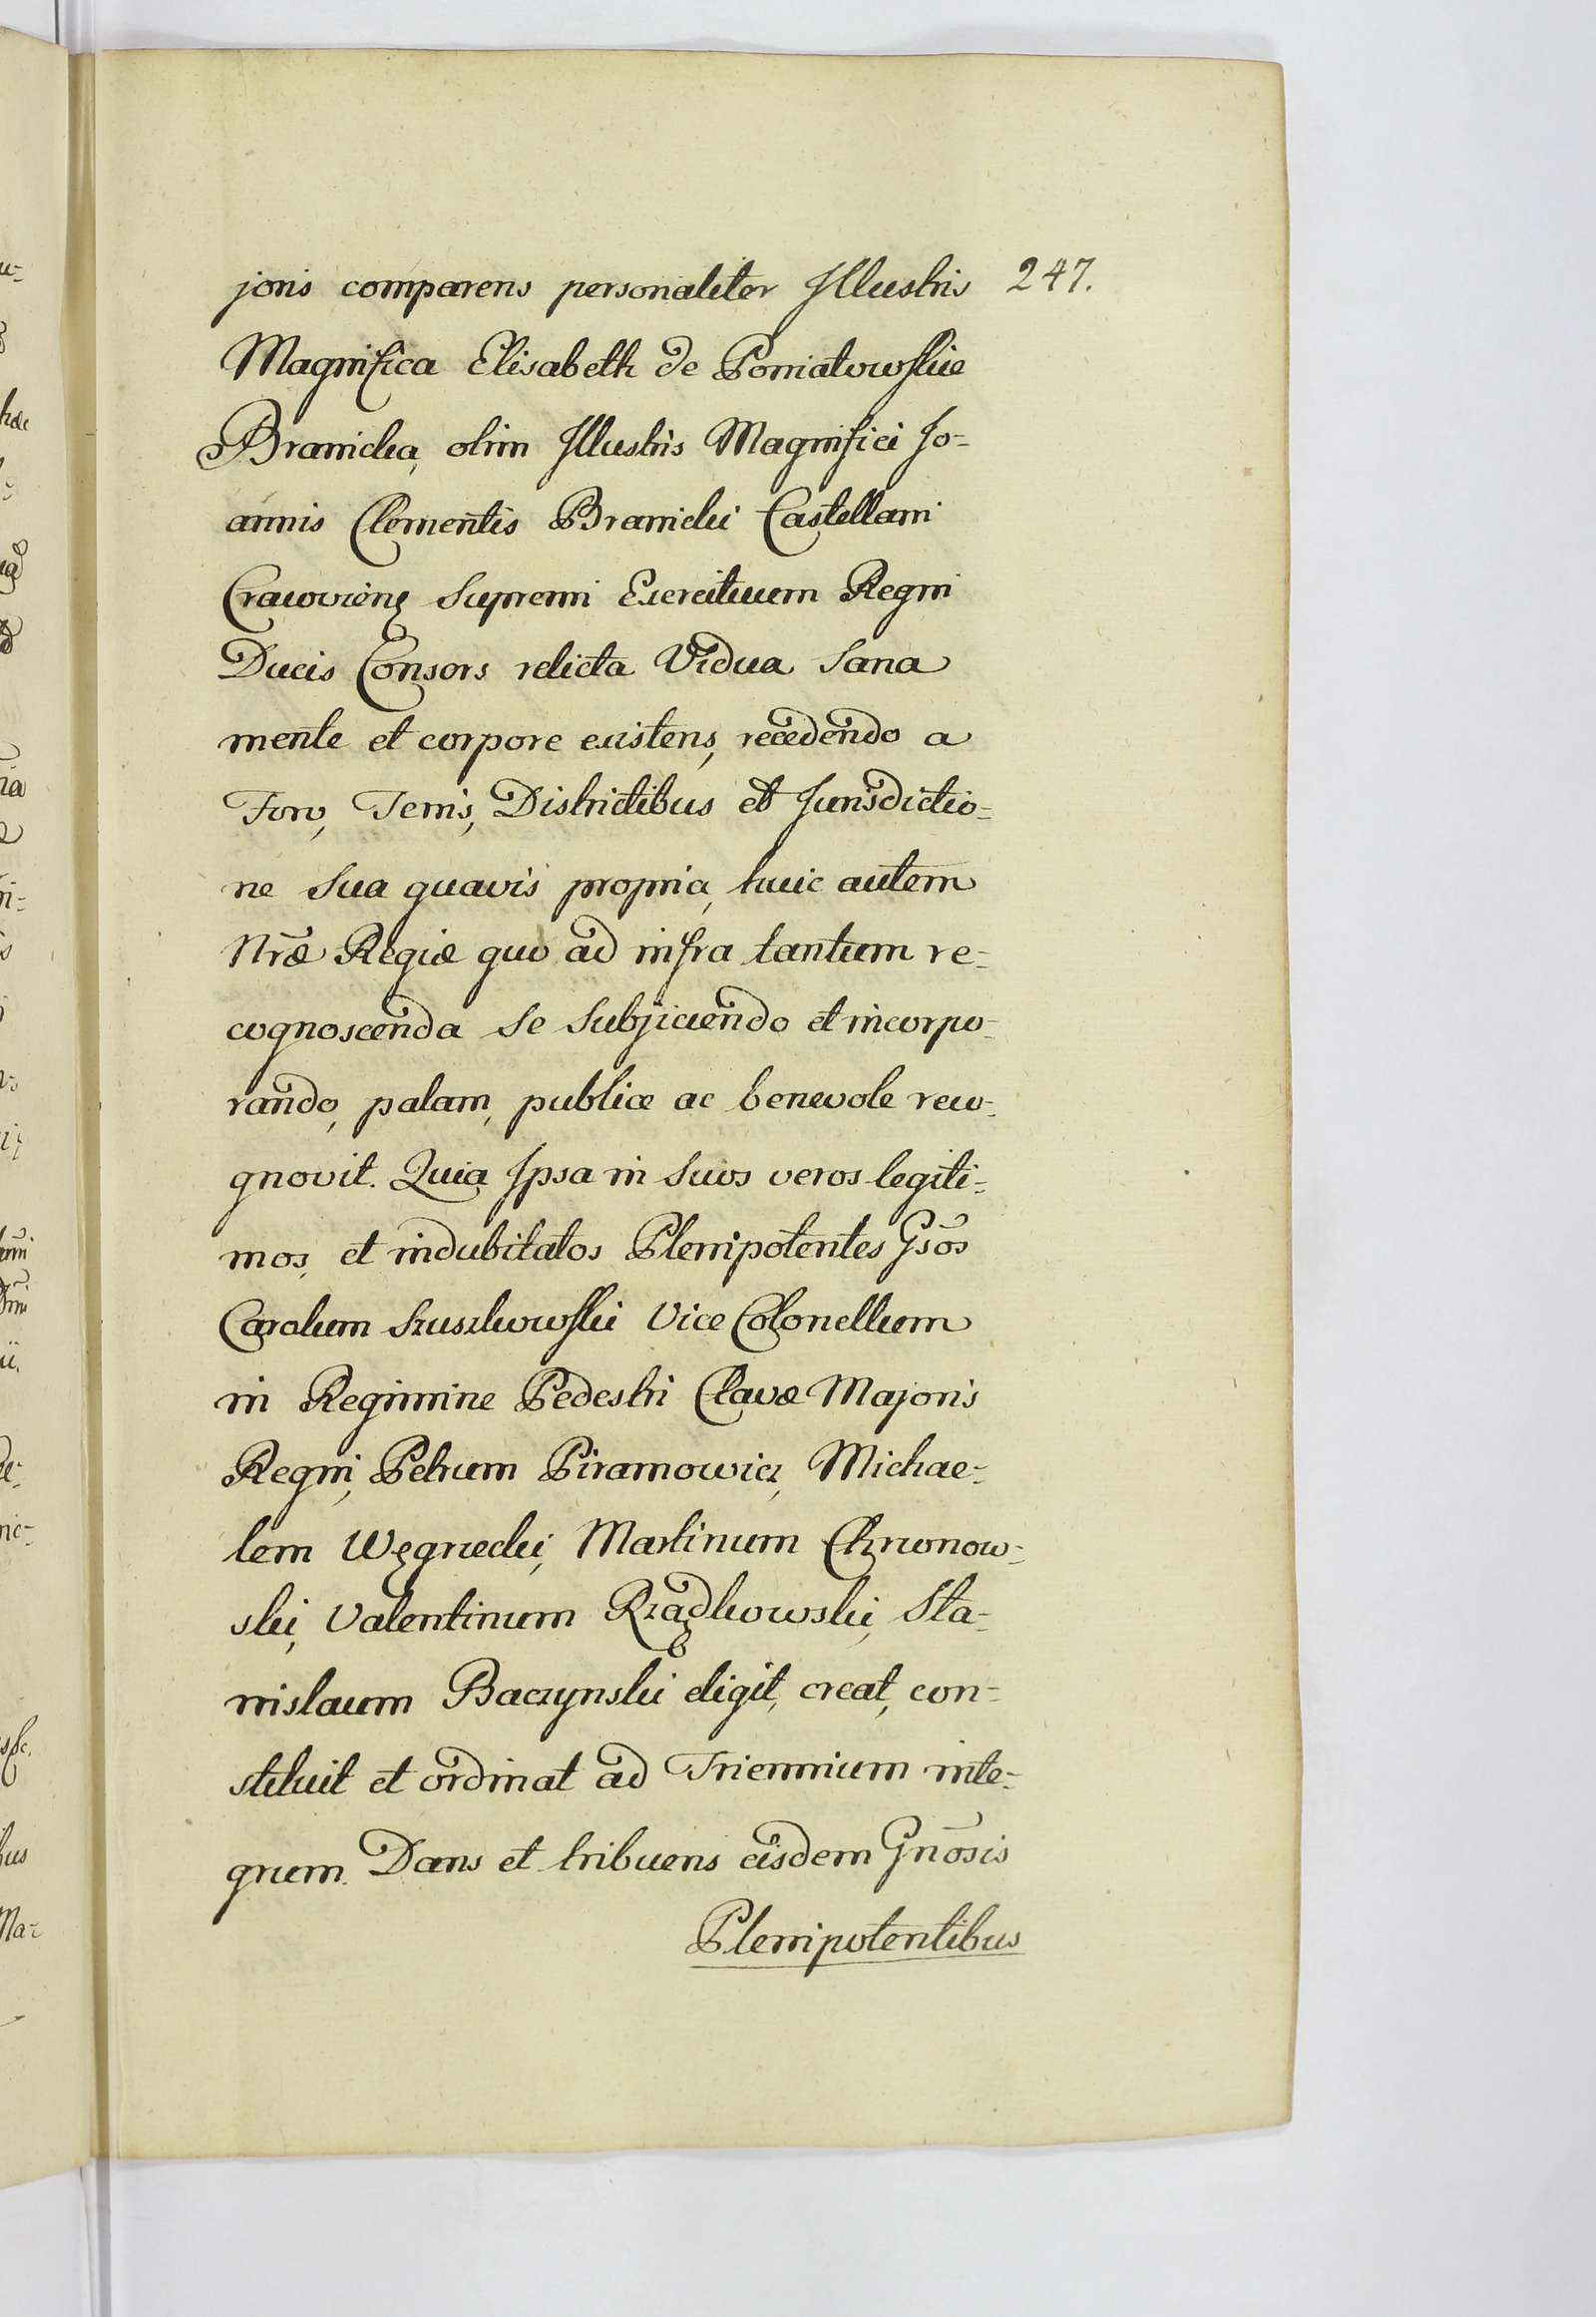 joris comparens personaliter Illustris 247.
Magnifica Elisabeth de Poniatowskie
Branicka, olim Illustris Magnifici Jo=
annis Clementis Branicki Castellani
Cracovien, Supremi Exercituum Regni
Ducis Consors relicta Vidua Sana
mente et corpore existens, recedendo a
Foro, Terris, Districtibus et Jurisdictio=
ne Sua quavis propria, huic autem
Nræ Regiæ quo ad infra tantum re=
cognoscenda Se Subjiciendo et incorpo=
rando, palam, publice ac benevole reco=
gnovit. Quia Ipsa in Suos veros legiti=
mos, et indubitatos Plenipotentes Gsos
Carolum Szuszkowski Vice Colonellum
in Regimine Pedestri Clavæ Majoris
Regni, Petrum Piramowicz, Michae=
lem Węgrzecki, Martinum Chrzonow=
ski, Valentinum Rządkowski, Sta=
nislaum Baczynski eligit, creat, con=
stituit et ordinat ad Triennium inte=
grum. Dans et tribuens eisdem Gnosis
Plenipotentibus